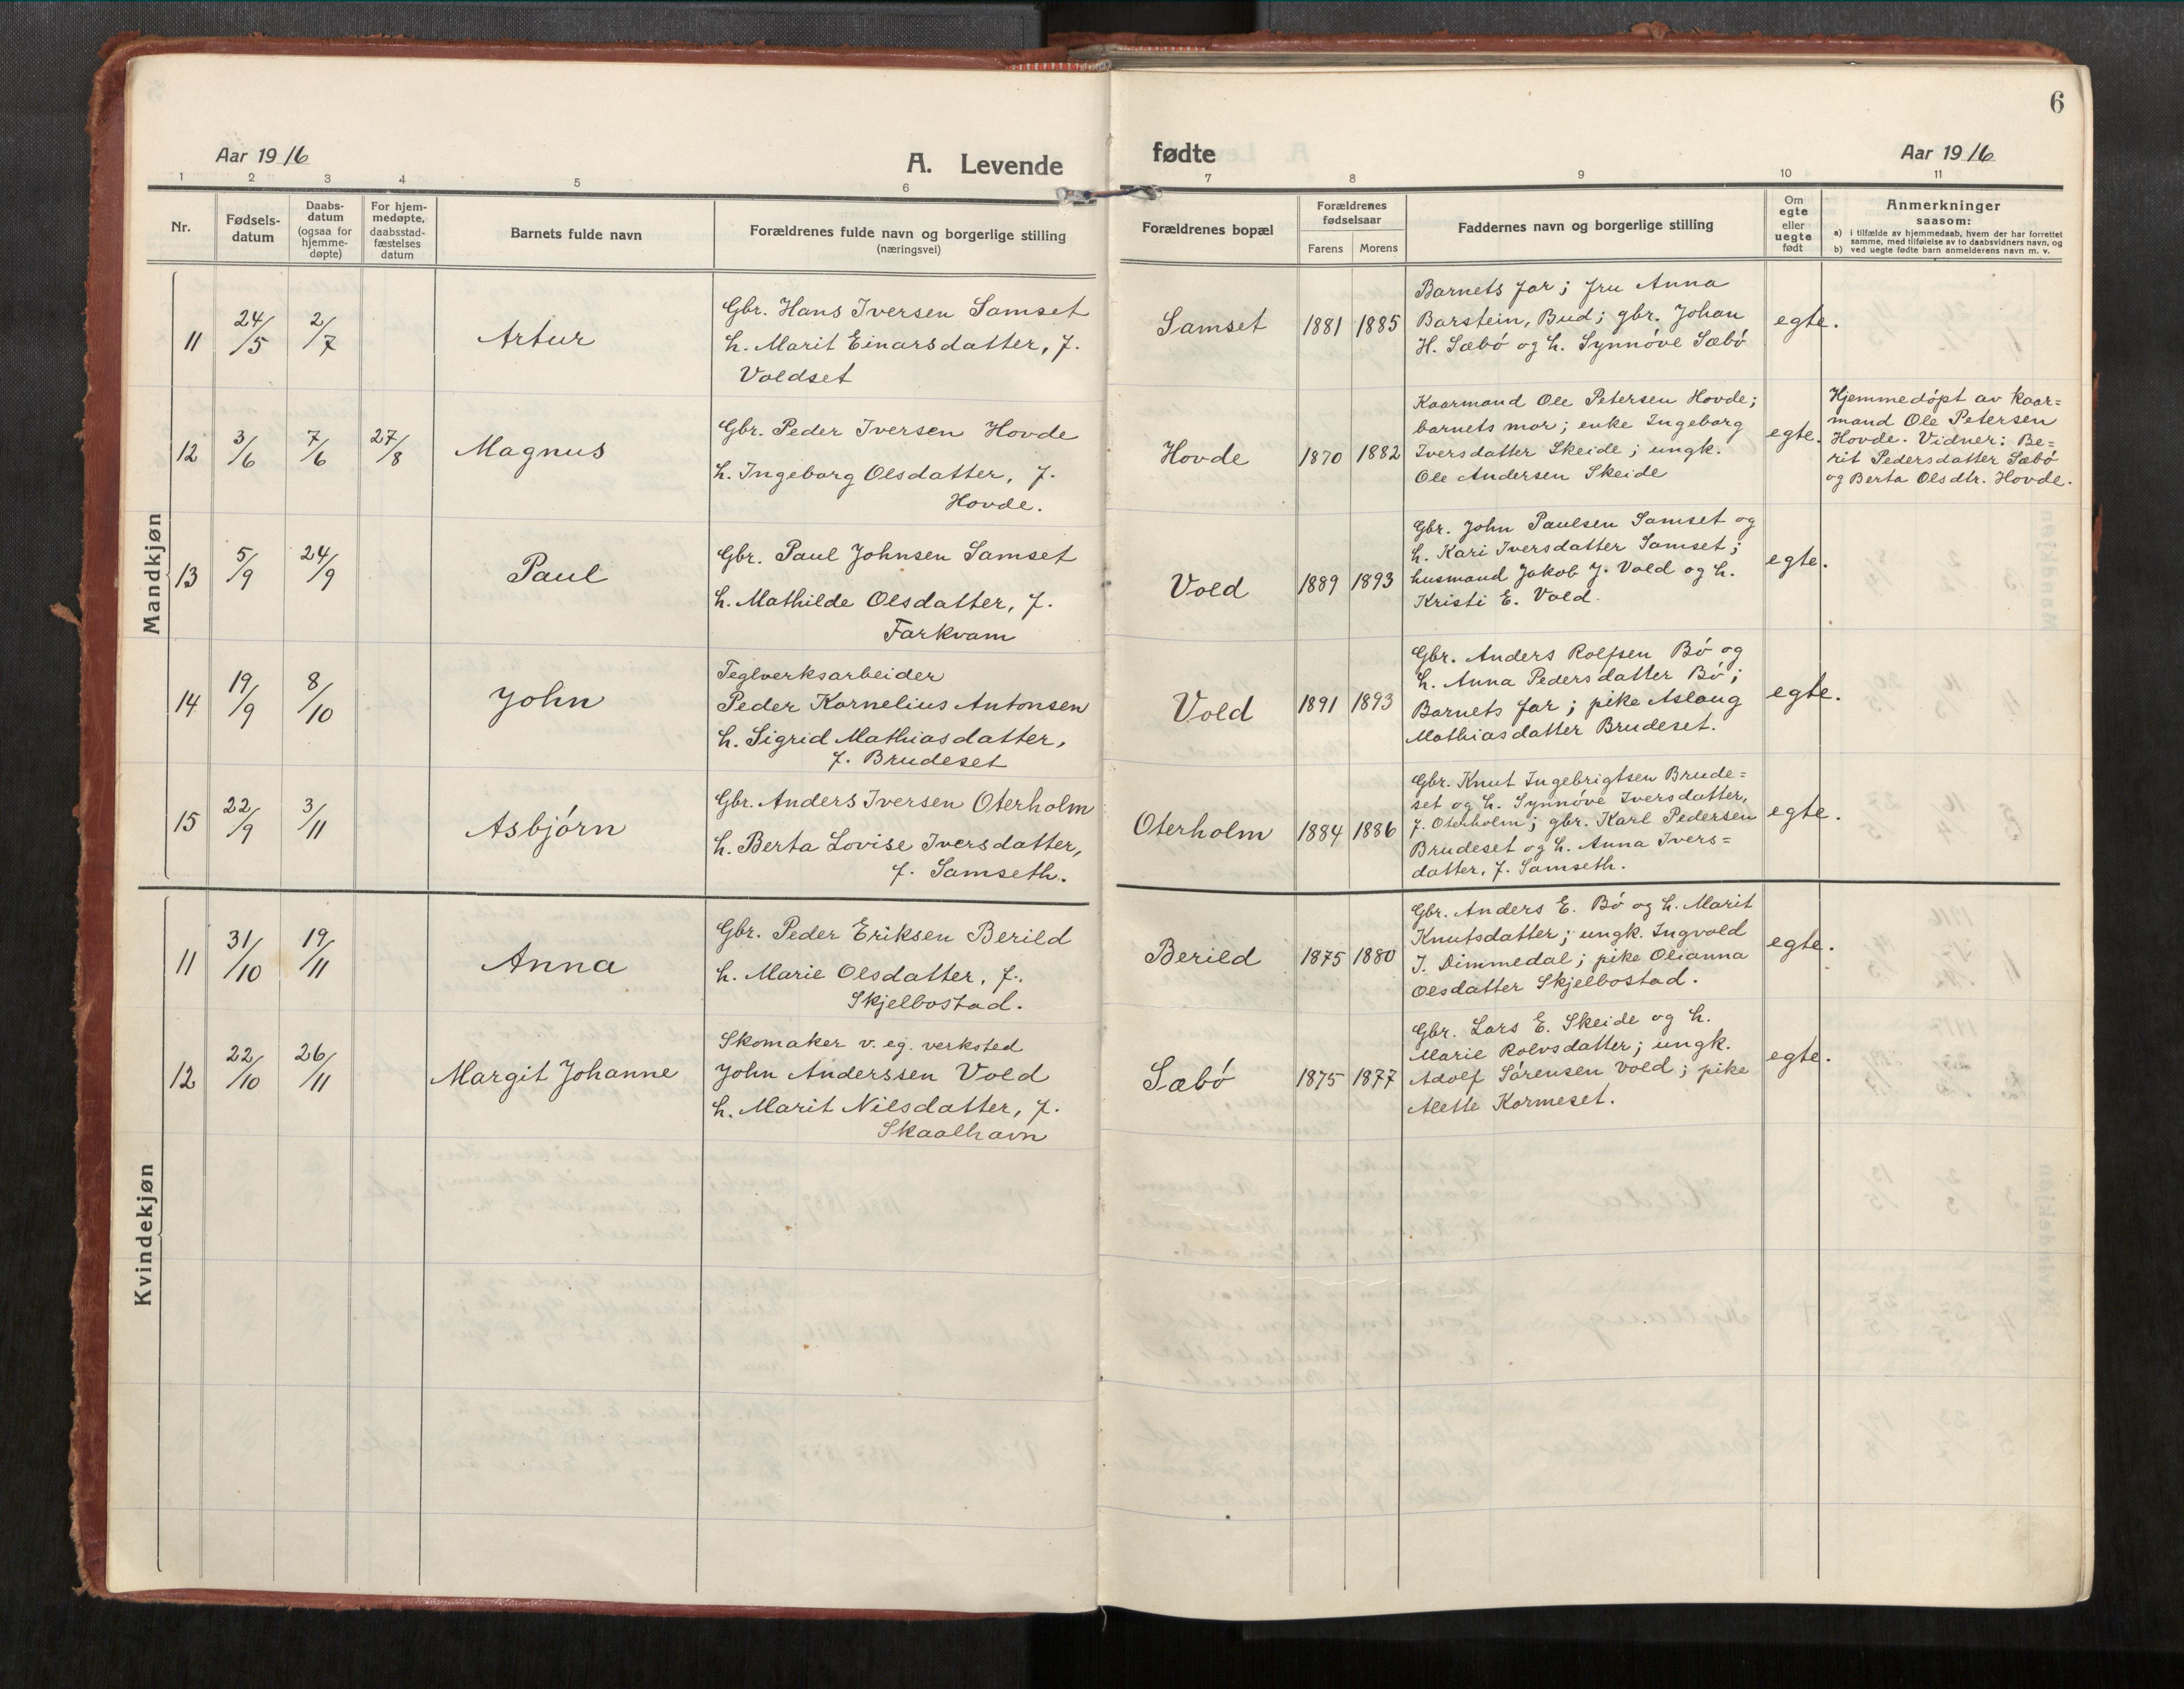 6
Aar 1916
A. Levende
fødte
Aar 1916
1 2 3 4 5 6 7 8 9 10 11
Nr.
Fødsels-
datum
Daabs-
datum
(ogsaa for
hjemme-
døpte)
For hjem-
medøpte,
daabsstad-
fæstelses
datum
Barnets fulde navn
Forældrenes fulde navn og borgerlige stilling
(næringsvei)
Forældrenes bopæl
Forældrenes
fødselsaar
Farens Morens
Faddernes navn og borgerlige stilling
Om
egte
eller
uegte
født
Anmerkninger
saasom:
a) i tilfælde av hjemmedaab, hvem der har forrettet
samme, med tilføielse av to daabsvidners navn, og
b) ved uegte fødte barn anmelderens navn m. v.
Mandkjøn
11 24/5 2/7 Artur
Gbr. Hans Iversen Samset
h. Marit Einarsdatter, f.
Voldset
Samset 1881 1885
Barnets far; fru Anna
Barstein, Bud; gbr. Johan
H. Sæbó og h. Synnóve Sæbó
egte.
12 3/6 7/6 27/8 Magnus
Gbr. Peder Iversen Hovde
h. Ingeborg Olsdatter, f.
Hovde.
Hovde 1870 1882
Kaarmand Ole Petersen Hovde;
barnets mor; enke Ingeborg
Iversdatter Skeide; ungk.
Ole Andersen Skeide
egte.
Hjemmedópt av kaar=
mand Ole Petersen
Hovde. Vidner: Be=
rit Pedersdatter Sæbó
og Berta Olsdtr. Hovde.
13 5/9 24/9 Paul
Gbr. Paul Johnsen Samset
h. Mathilde Olsdatter, f.
Farkvam
Vold 1889 1893
Gbr. John Paulsen Samset og
h. Kari Iversdatter Samset;
husmand Jakob J. Vold og h.
Kristi E. Vold.
egte.
14 19/9 8/10 John
Teglverksarbeider
Peder Kornelius Antonsen
h. Sigrid Mathiasdatter,
f. Brudeset
Vold 1891 1893
Gbr. Anders Rolfsen Bó og
h. Anna Pedersdatter Bó;
Barnets far; pike Aslaug
Mathiasdatter Brudeset.
egte.
15 22/9 3/11 Asbjórn
Gbr. Anders Iversen Oterholm
h. Berta Lovise Iversdatter,
f. Samseth.
Oterholm 1884 1886
Gbr. Knut Ingebrigtsen Brude=
set og h. Synnóve Iversdatter,
f. Oterholm; gbr. Karl Pedersen
Brudeset og h. Anna Ivers=
datter, f. Samseth.
egte.
Kvindekjøn
11 31/10 19/11 Anna
Gbr. Peder Eriksen Berild
h. Marie Olsdatter, f.
Skjelbostad.
Berild 1875 1880
Gbr. Anders E. Bó og h. Marit
Knutsdatter; ungk. Ingvald
I. Dimmedal; pike Olianna
Olsdatter Skjelbostad.
egte.
12 22/10 26/11 Margit Johanne
Skomaker v. eg. verksted
John Anderssen Vold
h. Marit Nilsdatter, f.
Skaalhavn
Sæbó 1875 1877
Gbr. Lars E. Skeide og h.
Marie Rolvsdatter; ungk.
Adolf Sórensen Vold; pike
Alette Kormeset.
egte.